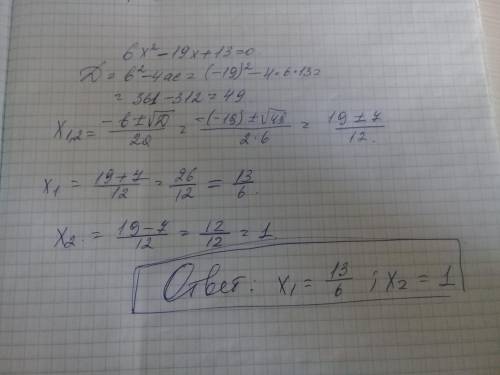 6x² - 19x + 13 = 0
D = b² - 4ac = (-19)² - 4·6·13 =
= 361 - 312 = 49
x₁,₂ = (-b ± √D)/2a = (-(-19) ± √49)/(2·6) = (19 ± 7)/12.
x₁ = (19+7)/12 = 26/12 = 13/6.
x₂ = (19-7)/12 = 12/12 = 1
Ответ: x₁ = 13/6 ; x₂ = 1